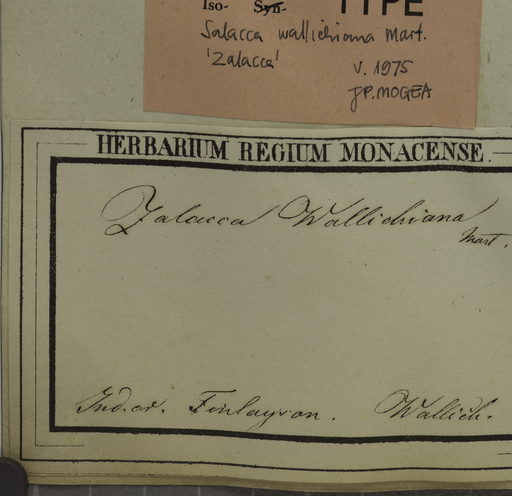 Iso- Syn- TYPE
Salacca wallichiana Mart.
'Zalacca'
V. 1975
JP. MOGEA
HERBARIUM REGIUM MONACENSE.
Zalacca Wallichiana
Mart.
Ind. or. Finlayson. Wallich.